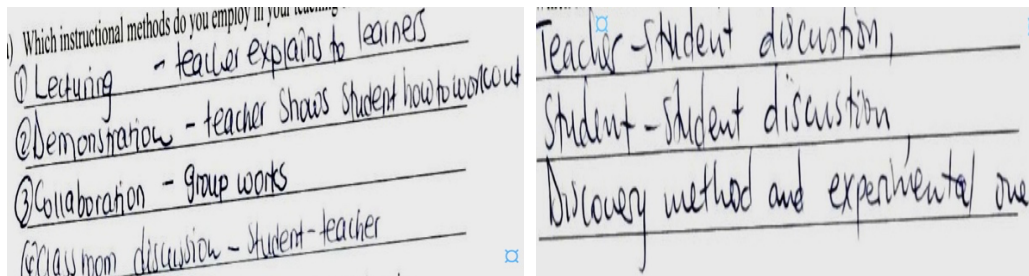 ) Which instructional methods do you employ in your teaching
① Lecturing - teacher explains to learners
② Demonstration - teacher shows student how to workout
③ Collaboration - group works
④ Classroom discussion - Student-teacher
Teacher-student discustion,
Student-student discustion
Discovery method and experimental one